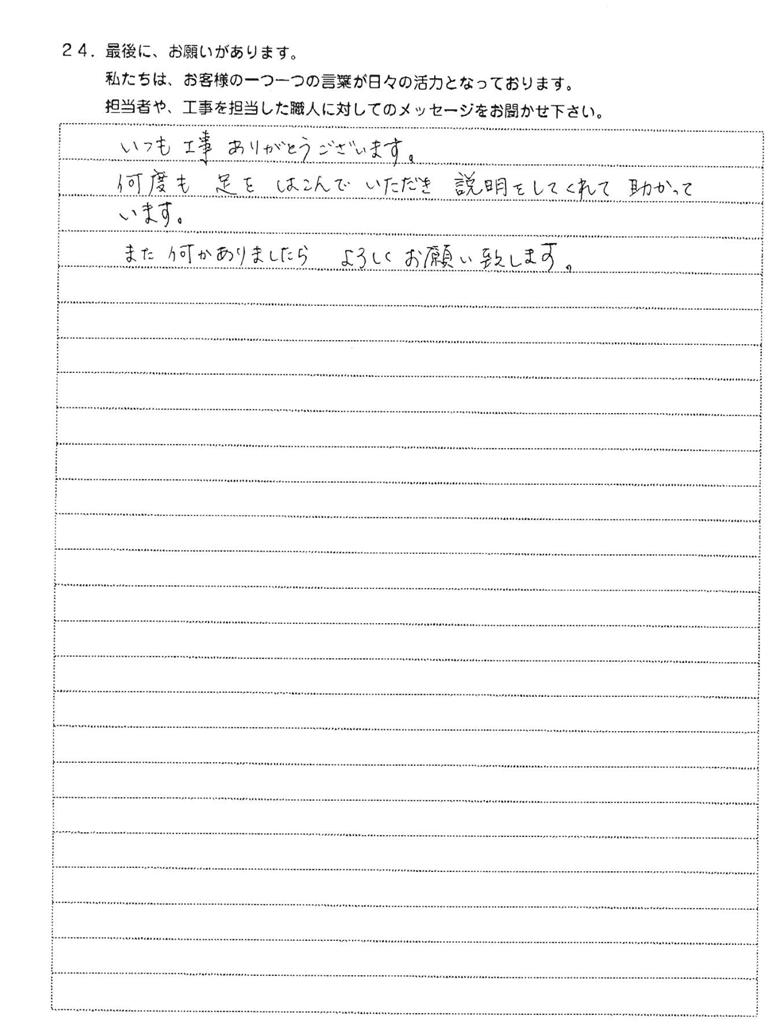 24．最後に、お願いがあります。
私たちは、お客様の一つ一つの言葉が日々の活力となっております。
担当者や、工事を担当した職人に対してのメッセージをお聞かせ下さい。
いつも工事 ありがとうございます。
何度も 足を はこんで いただき 説明をしてくれて 助かって
います。
また 何かありましたら よろしく お願い致します。